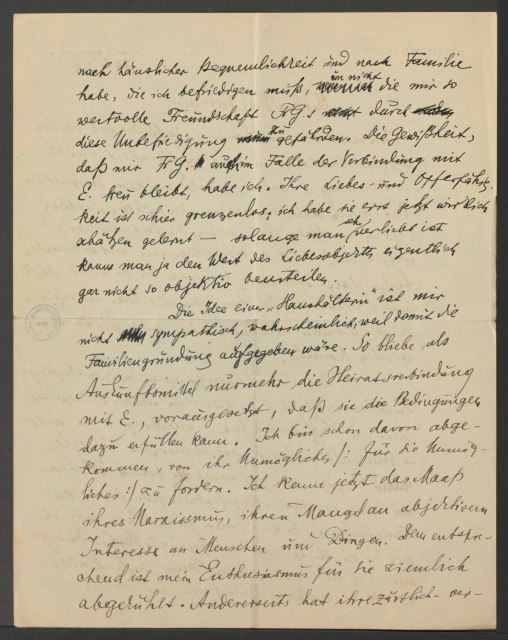 nach häuslicher Bequemlichkeit und nach Familie
habe, die ich befriedigen muß, um nicht die mir so
wertvolle Freundschaft Fr G.s durch
diese Unbefriedigung zu gefährden. Die Gewißheit,
daß mir Fr G. auch im Falle der Verbindung mit
E. treu bleibt, habe ich. Ihre Liebes- und Opferfähig-
keit ist schier grenzenlos; ich habe sie erst jetzt wirklich
schätzen gelernt — solange man verliebt ist
kann man ja den Wert des Liebesobjekts eigentlich
gar nicht so objektiv beurteilen.
Die Idee einer „Haushälterin" ist mir
nicht sympathisch, wahrscheinlich, weil damit die
Familiengründung aufgegeben wäre. So bliebe als
Auskunftsmittel nurmehr die Heiratsverbindung
mit E., vorausgesetzt, daß sie die Bedingungen
dazu erfüllen kann. Ich bin schon davon abge-
kommen, von ihr Unmögliches /: für sie Unmög-
liches :/ zu fordern. Ich kenne jetzt das Maaß
ihres Narzissmus, ihren Mangel an objektivem
Interesse an Menschen und Dingen. Dem entspre-
chend ist mein Enthusiasmus für sie ziemlich
abgekühlt. Andererseits hat ihre zärtlich- ver-